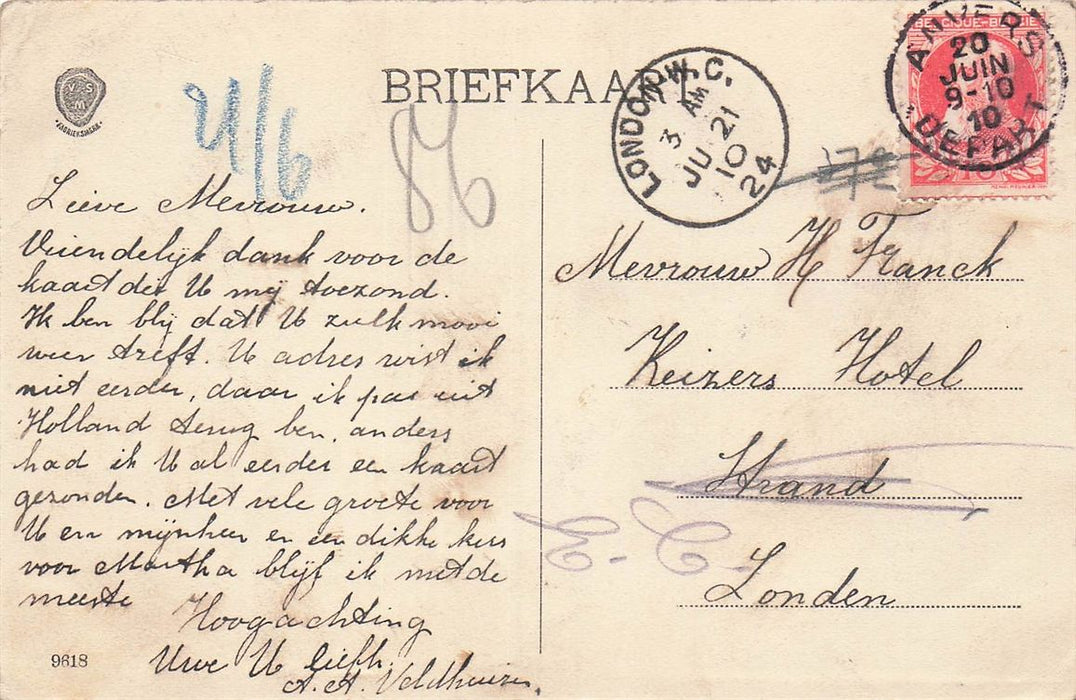 BRIEFKAART
V S M
FABRIEKSMERK
4/6
86
LONDON W.C.
3 AM
JU 21
10
24
BELGIQUE-BELGIË
ANVERS
20
JUIN
9-10
10
DEPART
Lieve Mevrouw.
Vriendelijk dank voor de
kaart die U mij toezond.
Ik ben blij dat U zulk mooi
weer treft. U adres wist ik
niet eerder, daar ik pas uit
Holland terug ben, anders
had ik U al eerder een kaart
gezonden. Met vele groete voor
U en mijnheer en een dikke kus
voor Martha blijf ik met de
meeste
Hoogachting
Uwe U liefh.
A. A. Veldhuizen.
9618
Mevrouw H Franck
Keizers Hotel
Strand
E.C.
Londen